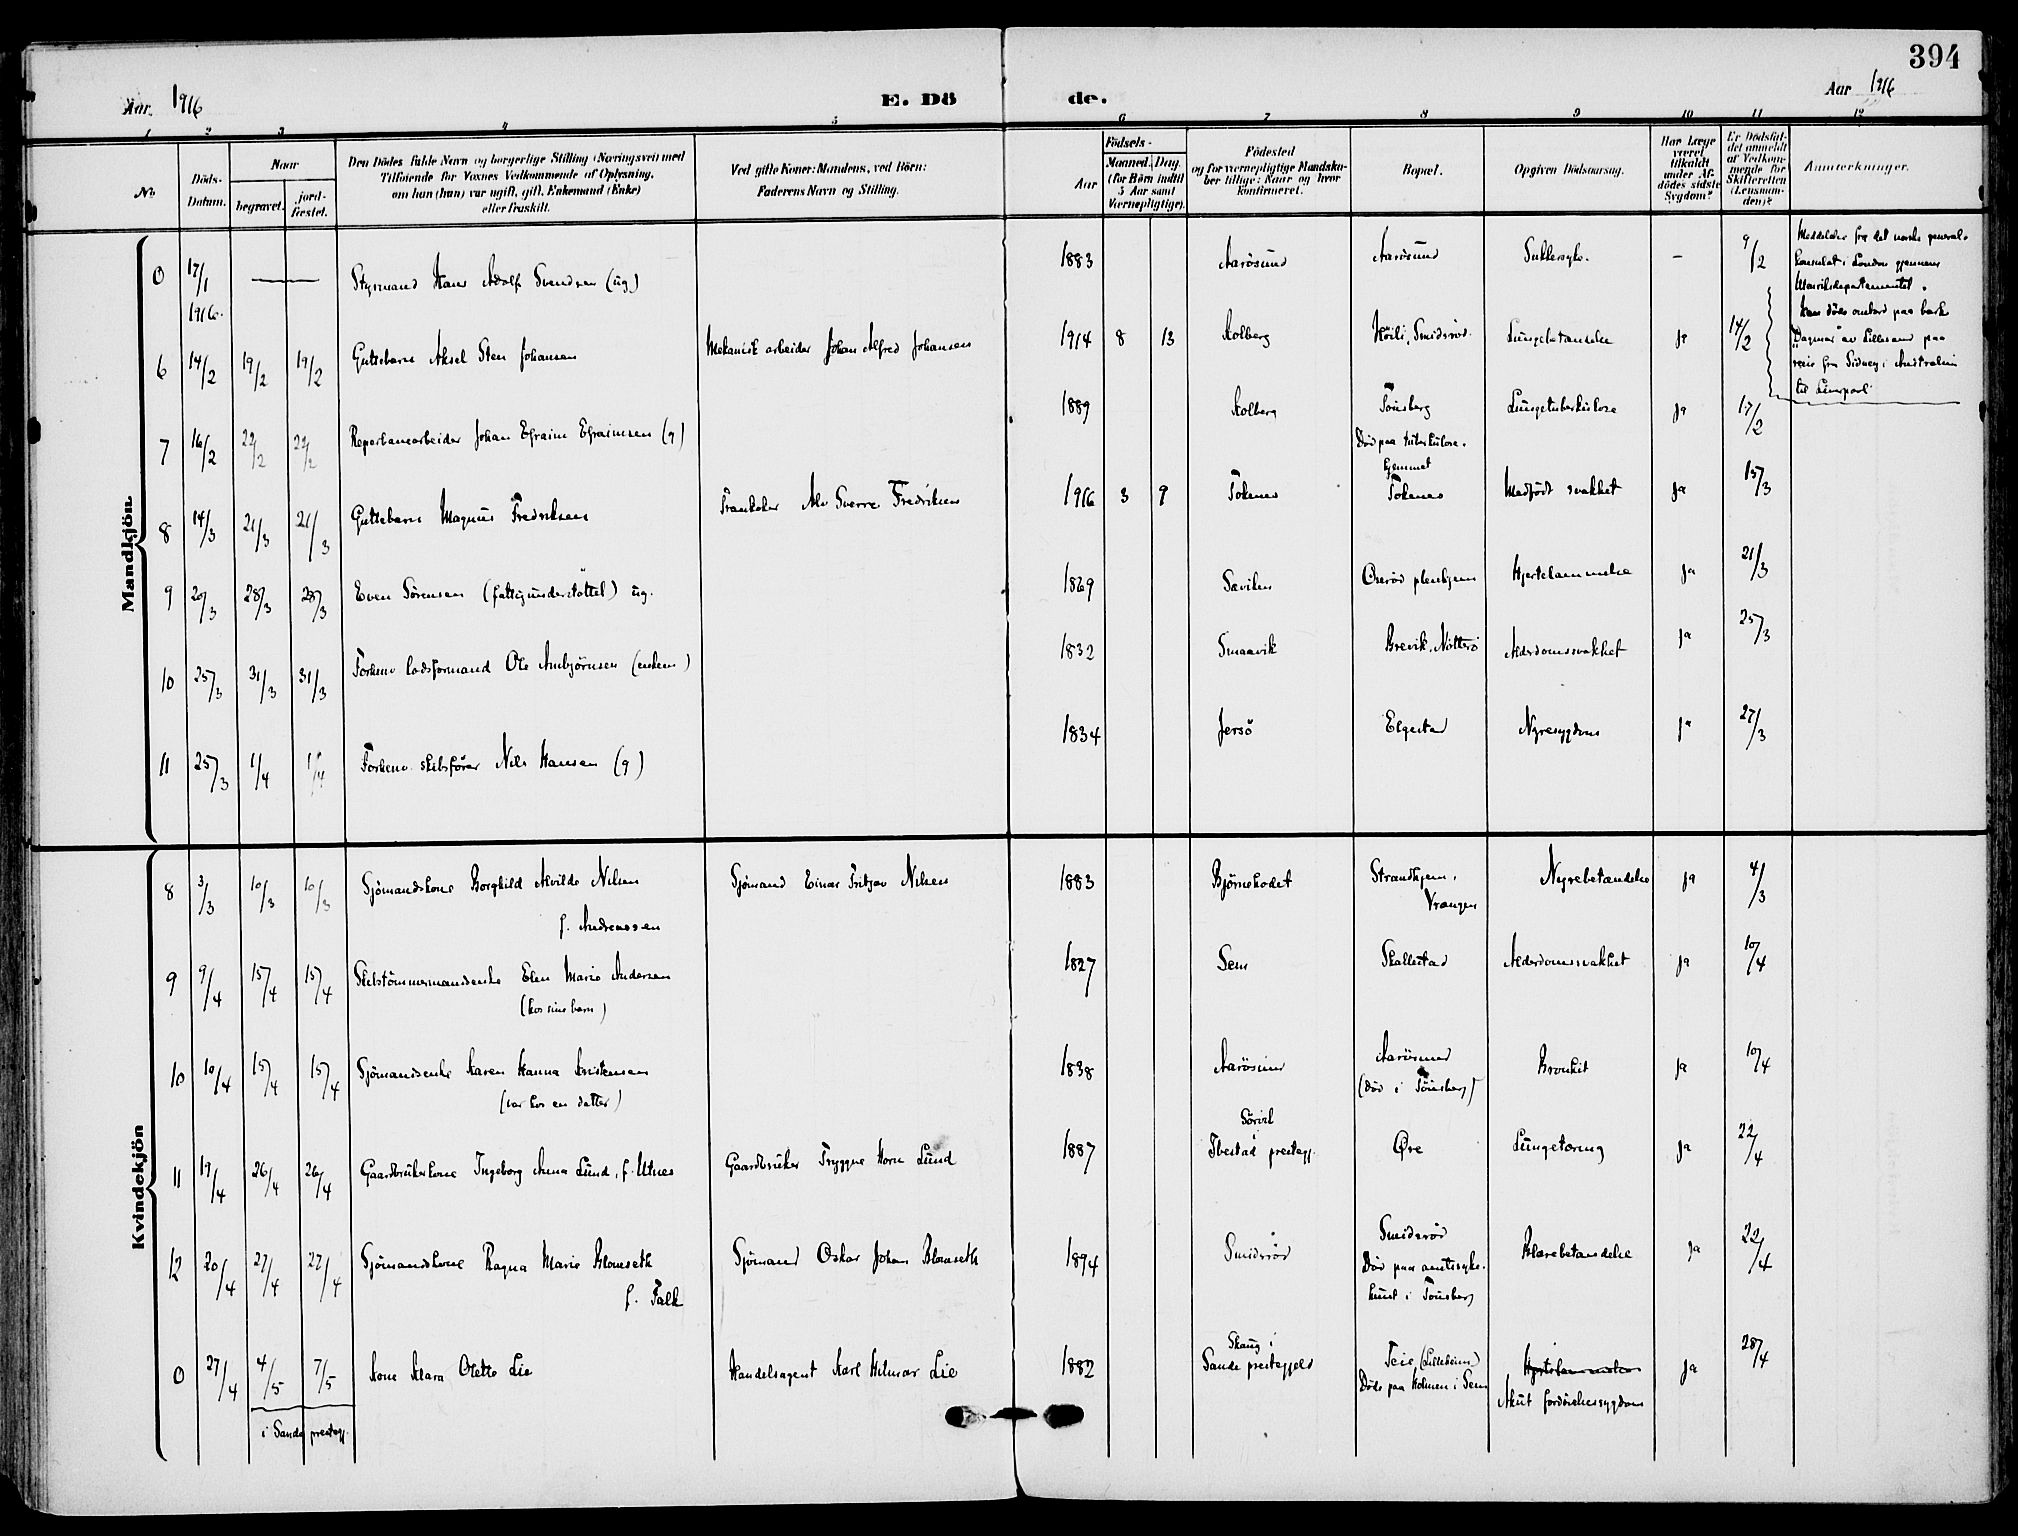 394
Aar 1916
E. Dö
de.
Aar 1916
1 2 3 4 5 6 7 8 9 10 11 12
No
Döds-
Datum.
Naar
begravet.
jord-
fæstet.
Den Dödes fulde Navn og borgerlige Stilling (Næringsvei) med
Tilföiende for Voxnes Vedkommende af Oplysning,
om han (hun) var ugift, gift, Enkemand (Enke)
eller fraskilt.
Ved gifte Koner: Mandens, ved Börn:
Faderens Navn og Stilling.
Födsels-
Aar
Maaned. Dag.
(for Börn indtil
5 Aar samt
Værnepligtige).
Födested
og for værnepligtige Mandska-
ber tillige: Naar og hvor
konfirmeret.
Bopæl.
Opgiven Dödsaarsag.
Har Læge
været
tilkaldt
under Af-
dödes sidste
Sygdom?
Er Dödsfal-
det anmeldt
af Vedkom-
mende for
Skifteretten
(Lensman-
den)?
Anmærkninger.
Mandkjön
0 17/1 1916. — — Styrmand Hans Adolf Svendsen (ug.) 1883 Aarösund Aarösund Sukkersyke. – 9/2
Meddelelse fra det norske general-
konsulat i London gjennem
Utenriksdepartementet.
Han döde ombord paa bark
"Dagmar" av Lillesand paa
reise fra Sidney i Australien
til Liverpool.
6 14/2 19/2 19/2 Guttebarn Aksel Sten Johansen Mekanisk arbeider Johan Alfred Johansen 1914 8 13 Kolberg Höili, Smidsröd. Lungebetændelse ja 14/2
7 16/2 22/2 22/2 Reperbanearbeider Johan Efraim Efraimsen (g) 1889 Kolberg Tönsberg Lungetuberkulose ja 17/2
Död paa tuberkulose-
hjemmet
8 14/3 21/3 21/3 Guttebarn Magnus Fredriksen Trankoker Alv Sverre Fredriksen 1916 3 9 Tokenes Tokenes Medfödt svakhet ja 15/3
9 20/3 28/3 28/3 Even Sörensen (fattigunderstöttet) ug. 1869 Sæviken Oseröd pleiehjem Hjertelammelse ja 21/3
10 25/3 31/3 31/3 Forhenv. lodsformand Ole Ambjörnsen (enkem) 1832 Smaavik Brevik, Nötterö Alderdomssvakhet ja 25/3
11 25/3 1/4 1/4 Forhenv. skibsförer Nils Hansen (g) 1834 Jersö Elgestad Nyresygdom ja 27/3
Kvindekjön
8 3/3 10/3 10/3 Sjömandskone Borghild Alvilde Nilsen Sjömand Einar Fritjov Nilsen 1883 Björnebodet Strandhjem, Nyrebetændelse ja 4/3
f. Andreassen
Vrangen
9 9/4 15/4 15/4 Skibstömmermandsenke Elen Marie Andersen 1827 Sem Skallestad Alderdomssvakhet ja 10/4
(hos sine barn)
10 10/4 15/4 15/4 Sjömandsenke Karen Hanna Kristensen 1838 Aarösund Aarösund Bronkit ja 10/4
(var hos en datter)
(död i Tönsberg)
11 19/4 26/4 26/4 Gaardbrukerkone Ingeborg Anna Lund, f. Utnes Gaardbruker Tryggve Horn Lund 1887 Sörvik
Ibestad prestegj. Øre Lungetæring ja 22/4
12 20/4 27/4 27/4 Sjömandskone Ragna Marie Blomseth Sjömand Oskar Johan Blomseth 1894 Smidsröd Smidsröd Blærebetændelse ja 22/4
f. Falk
Död paa amtssyke-
huset i Tönsberg
0 27/4 4/5 7/5 Kone Klara Olette Lie Handelsagent Karl Hilmar Lie 1882 Skaug i
Sande prestegjeld Teie (Lilleheim) Hjertelammelse ja 28/4
Döde paa Holmen i Sem
Akut fordöielsessygdom
i Sande prestegj.